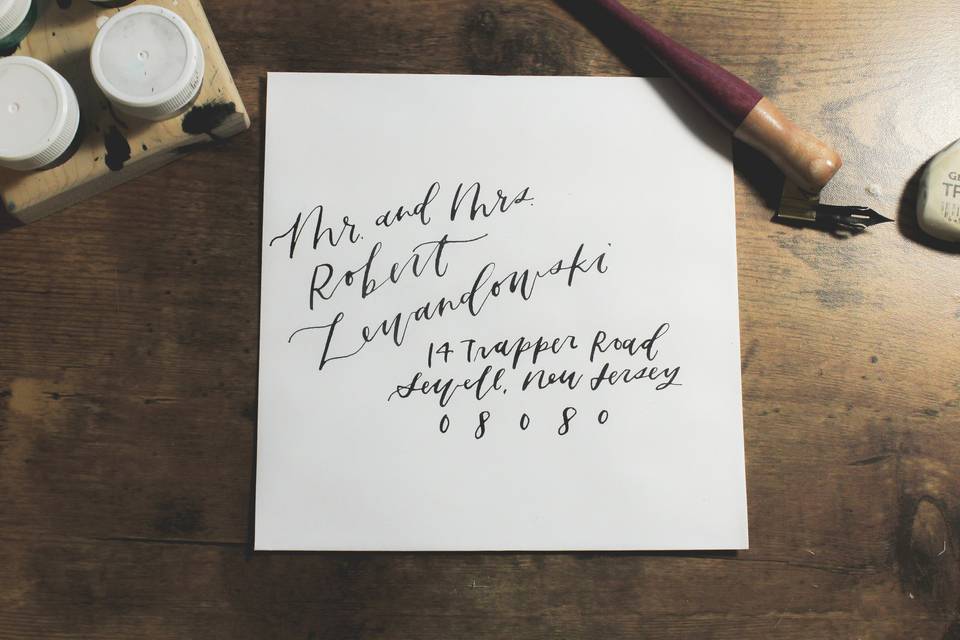 Mr. and Mrs.
Robert
Lewandowski
14 Trapper Road
Sewell, New Jersey
08080